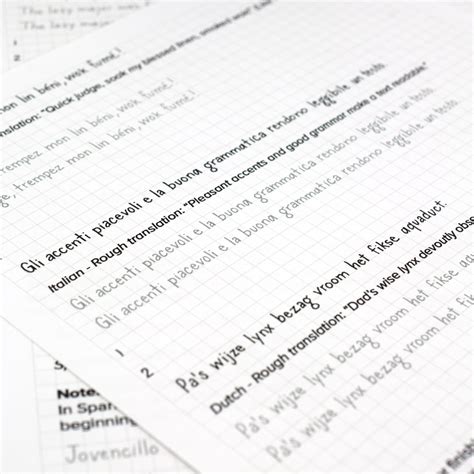 The lazy major was
The lazy major was fix
mon lin béni, wok fumé!
translation: "Quick judge, soak my blessed linen, smoked wok"
trempez mon lin béni, wok fumé!
ge, trempez mon lin béni, wok fumé!
Gli accenti piacevoli e la buona grammatica rendono leggibile un testo.
Italian - Rough translation: "Pleasant accents and good grammar make a text readable"
Gli accenti piacevoli e la buona grammatica rendono leggibile un testo.
Gli accenti piacevoli e la buona grammatica rendono leggibile un testo.
1
2
Pa's wijze lynx bezag vroom het fikse aquaduct.
Dutch - Rough translation: "Dad's wise lynx devoutly obse
Pa's wijze lynx bezag vroom het fikse aquaduct.
Pa's wijze lynx bezag vroom het fikse
1
2
Note:
In Span
beginning
Jovencillo